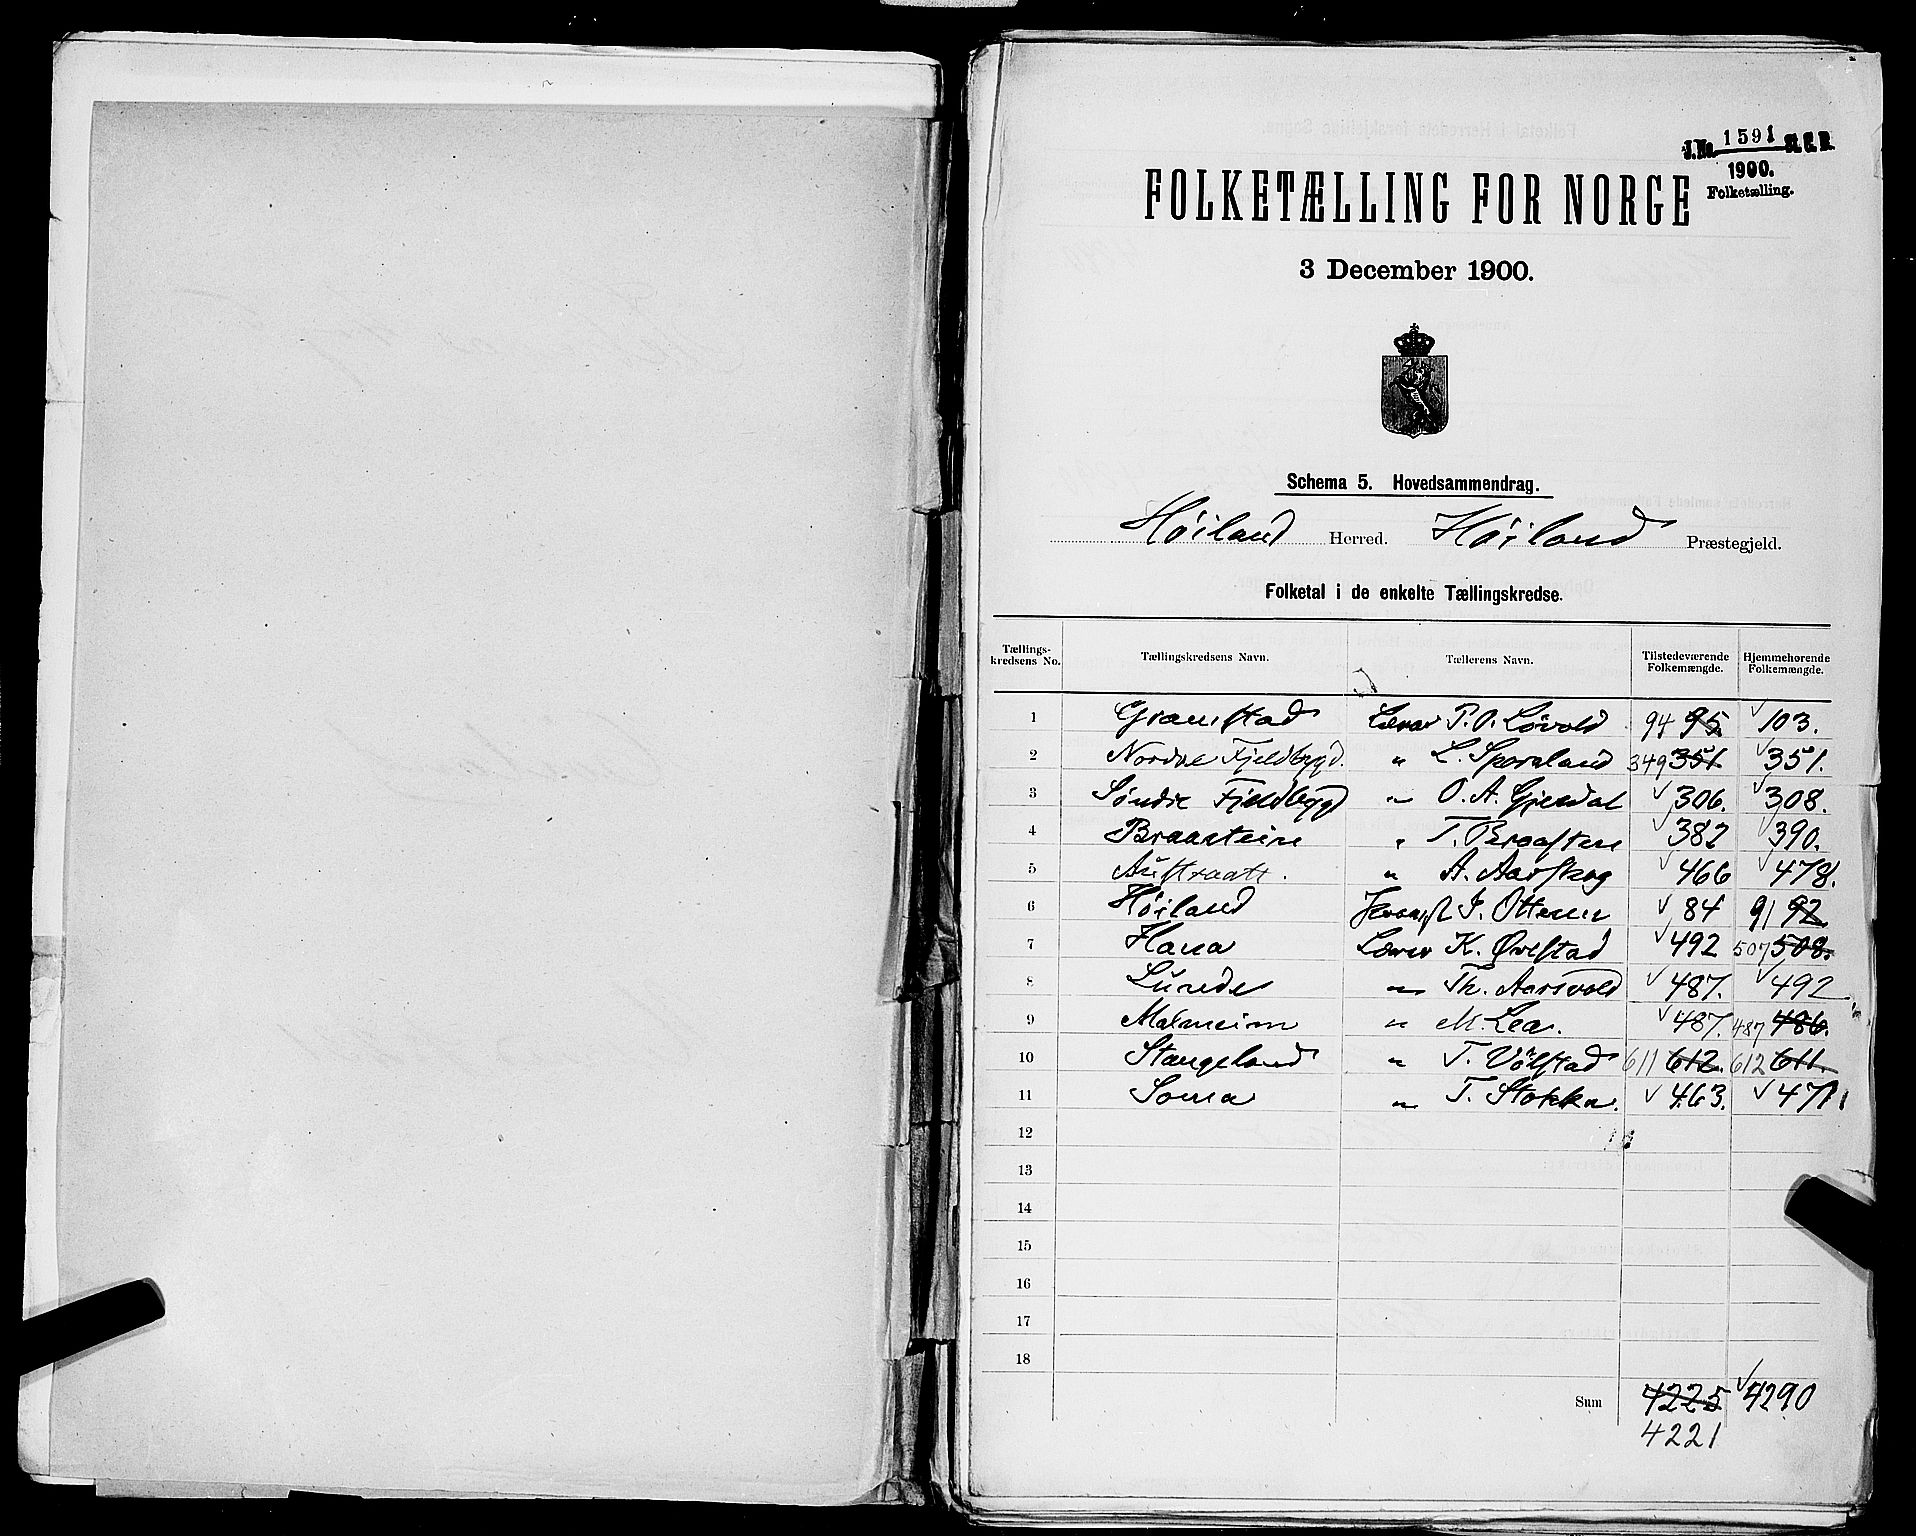 J.No. 1591 St. C. B.
1900.
Folketælling.
FOLKETÆLLING FOR NORGE
3 December 1900.
Schema 5. Hovedsammendrag.
Høiland Herred. Høiland Præstegjeld.
Folketal i de enkelte Tællingskredse.
Tællings-kredsens No. Tællingskredsens Navn. Tællerens Navn. Tilstedeværende Folkemængde. Hjemmehørende Folkemængde.
1 Gramstad Lærer P. O. Løvold 94 95. 103.
2 Nordre Fjeldbygd. " L. Sporaland 349 351. 351.
3 Søndre Fjeldbygd " O. A. Gjesdal 306. 308.
4 Braasteine " T. Braasten 382 390.
5 Austraatt. " A. Aarskog 466 478.
6 Høiland I. Ottesen 84 91 92
7 Hana Lærer K. Øvestad 492 507 508.
8 Lunde " Th. Aarsvold 487. 492
9 Malmeim " M. Lea. 487. 487 486.
10 Stangeland " T. Vølstad 611 612. 612 611.
11 Soma " T. Stokka. 463. 471
12
13
14
15
16
17
18
Sum 4225 4290
4221